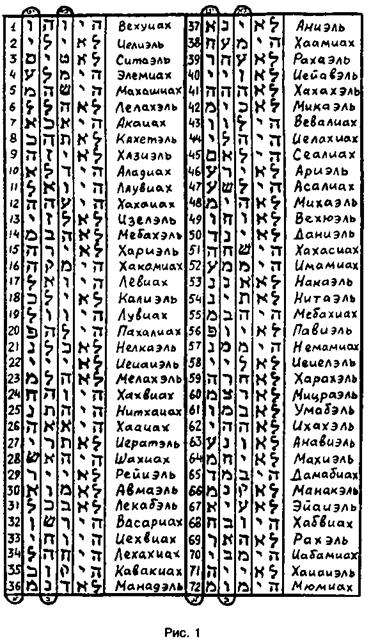 1 ו ה ו י ה Вехуиах
2 י ל י א ל Иелиэль
3 ס י ט א ל Ситаэль
4 ע ל מ י ה Элемиах
5 מ ה ש י ה Махашиах
6 ל ל ה א ל Лелахэль
7 א כ א י ה Акаиах
8 כ ה ת א ל Кахетэль
9 ה ז י א ל Хазиэль
10 א ל ד י ה Аладиах
11 ל א ו י ה Лаувиах
12 ה ה ע י ה Хахаиах
13 י ז ל א ל Изелэль
14 מ ב ה א ל Мебахэль
15 ה ר י א ל Хариэль
16 ה ק מ י ה Хакамиах
17 ל א ו י ה Левиах
18 כ ל י א ל Калиэль
19 ל ו ו י ה Лувиах
20 פ ה ל י ה Пахалиах
21 נ ל כ א ל Нелкаэль
22 י י י א ל Иеиаиэль
23 מ ל ה א ל Мелахэль
24 ח ה ו י ה Хахвиах
25 נ ת ה י ה Нитхаиах
26 ה א א י ה Хааиах
27 י ר ת א ל Иератэль
28 ש א ה י ה Шахиах
29 ר י י א ל Рейиэль
30 א ו מ א ל Авмаэль
31 ל כ ב א ל Лекабэль
32 ו ש ר י ה Васариах
33 י ח ו י ה Иехвиах
34 ל ה ח י ה Лехахиах
35 כ ו ק י ה Кавакиах
36 מ נ ד א ל Манадэль
37 א נ י א ל Аниэль
38 ח ע מ י ה Хаамиах
39 ר ה ע א ל Рахаэль
40 י י ז א ל Иейавэль
41 ה ה ה א ל Хахахэль
42 מ י כ א ל Микаэль
43 ו ו ל י ה Вевалиах
44 י ל ה י ה Иелахиах
45 ס א ל י ה Сеалиах
46 ע ר י א ל Ариэль
47 ע ש ל י ה Асалиах
48 מ י ה א ל Михаэль
49 ו ה ו א ל Вехюэль
50 ד נ י א ל Даниэль
51 ה ח ש י ה Хахасиах
52 ע מ מ י ה Имамиах
53 נ נ א א ל Накаэль
54 נ י ת א ל Нитаэль
55 מ ב ה י ה Мебахиах
56 פ ו י א ל Павиэль
57 נ מ מ י ה Немамиах
58 י י ל א ל Иеиелэль
59 ה ר ח א ל Харахэль
60 מ צ ר א ל Мицраэль
61 ו מ ב א ל Умабэль
62 י ה ה א ל Ихахэль
63 ע נ ו א ל Анавиэль
64 מ ח י א ל Махиэль
65 ד מ ב י ה Дамабиах
66 מ נ ק א ל Манакэль
67 א י ע א ל Эйаиэль
68 ח ב ו י ה Хабвиах
69 ר א ה א ל Рахэль
70 י ב מ י ה Иабамиах
71 ה י י א ל Хаиаиэль
72 מ ו מ י ה Мюмиах
Рис. 1